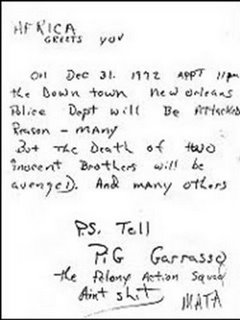 AFRICA
GREETS YOU
ON DEC 31. 1972 APPT 11pm
the Down town New Orleans
Police Dept will Be Attacked
Reason - MANY
But The Death of two
inocent Brothers will be
avenged. And many others
P.S. Tell
PiG Garrasso
the felony Action Squad
Ain't shit
MATA